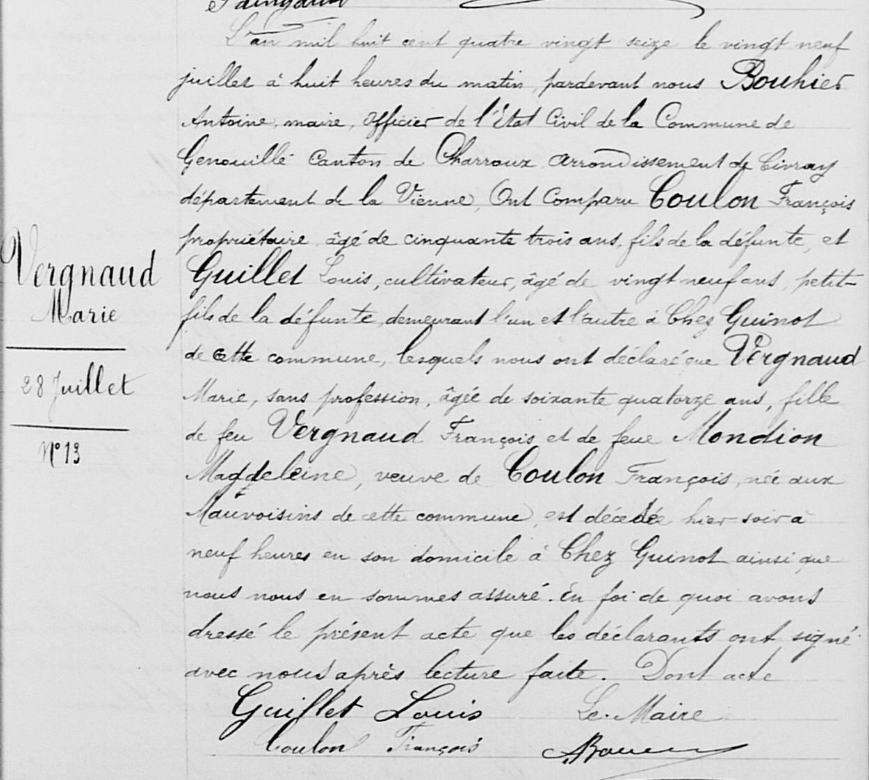 L'an mil huit cent quatre vingt seize le vingt neuf
juillet à huit heures du matin, pardevant nous Bouhier
Antoine, maire, officier de l'Etat Civil de la Commune de
Genouillé Canton de Charroux arrondissement de Civray
département de la Vienne, Ont Comparu Coulon François
propriétaire, âgé de cinquante trois ans, fils de la défunte, et
Guillet Louis, cultivateur, âgé de vingt neuf ans, petit-
fils de la défunte, demeurant l'un et l'autre à Chez Guinot
de cette commune, lesquels nous ont déclaré que Vergnaud
Marie, sans profession, âgée de soixante quatorze ans, fille
de feu Vergnaud François et de feue Mondion
Magdeleine, veuve de Coulon François, née aux
Mauvoisins de cette commune, est décédée hier soir à
neuf heures en son domicile à Chez Guinot ainsi que
nous nous en sommes assuré. En foi de quoi avons
dressé le présent acte que les déclarants ont signé
avec nous après lecture faite. Dont acte
Guillet Louis Le Maire
Coulon François
Vergnaud
Marie
28 Juillet
N° 13